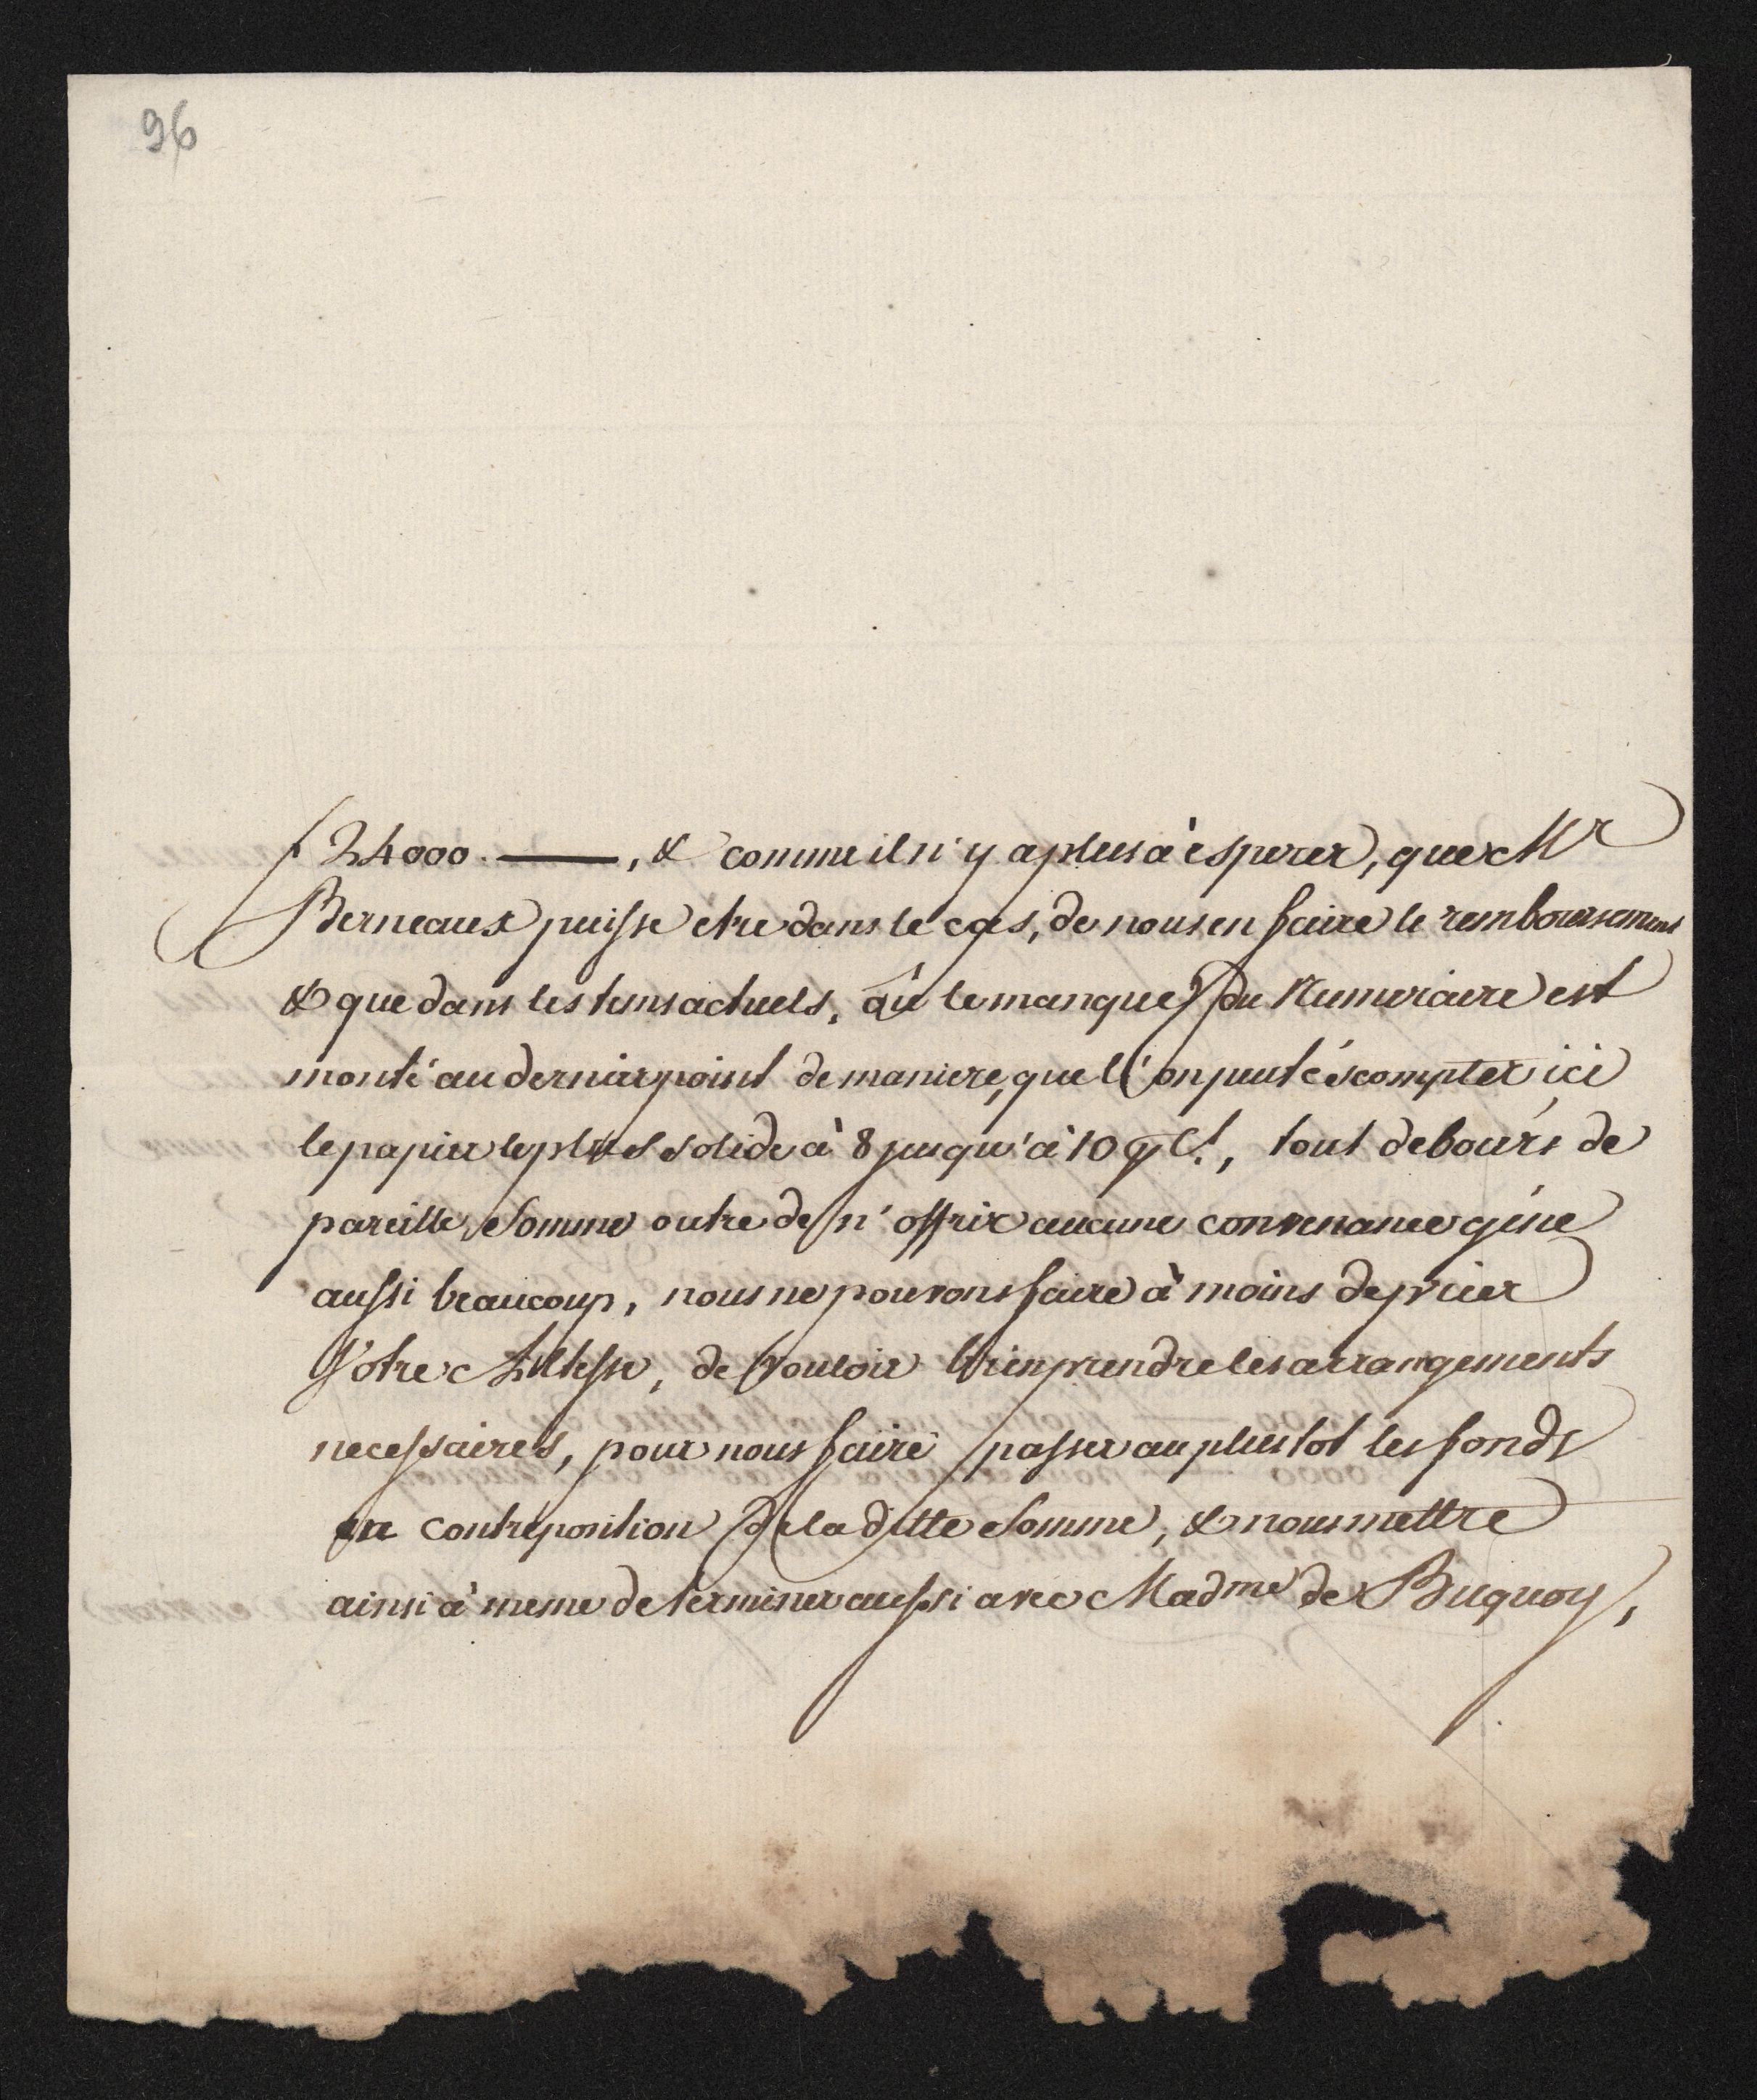 96
f 24000. ——, & comme il n'y a plus à esperer, que Mr
Berneaux puisse etre dans le cas, de nous en faire le remboursement
& que dans les tems actuels, où le manque du Numeraire est
monté au dernier point de maniere, que l'on peut éscompter ici
le papier le plus solide à 8 jusqu'à 10 pCt., tout debours de
pareille Somme outre de n'offrir aucune convenance gêne
aussi beaucoup, nous ne pouvons faire à moins de prier
Votre Altesse, de vouloir bien prendre les arrangements
necessaires, pour nous faire passer au plustot les fonds
en contreposition de la ditte Somme, & nous mettre
ainsi à meme de terminer aussi avec Madme de Buquoy,